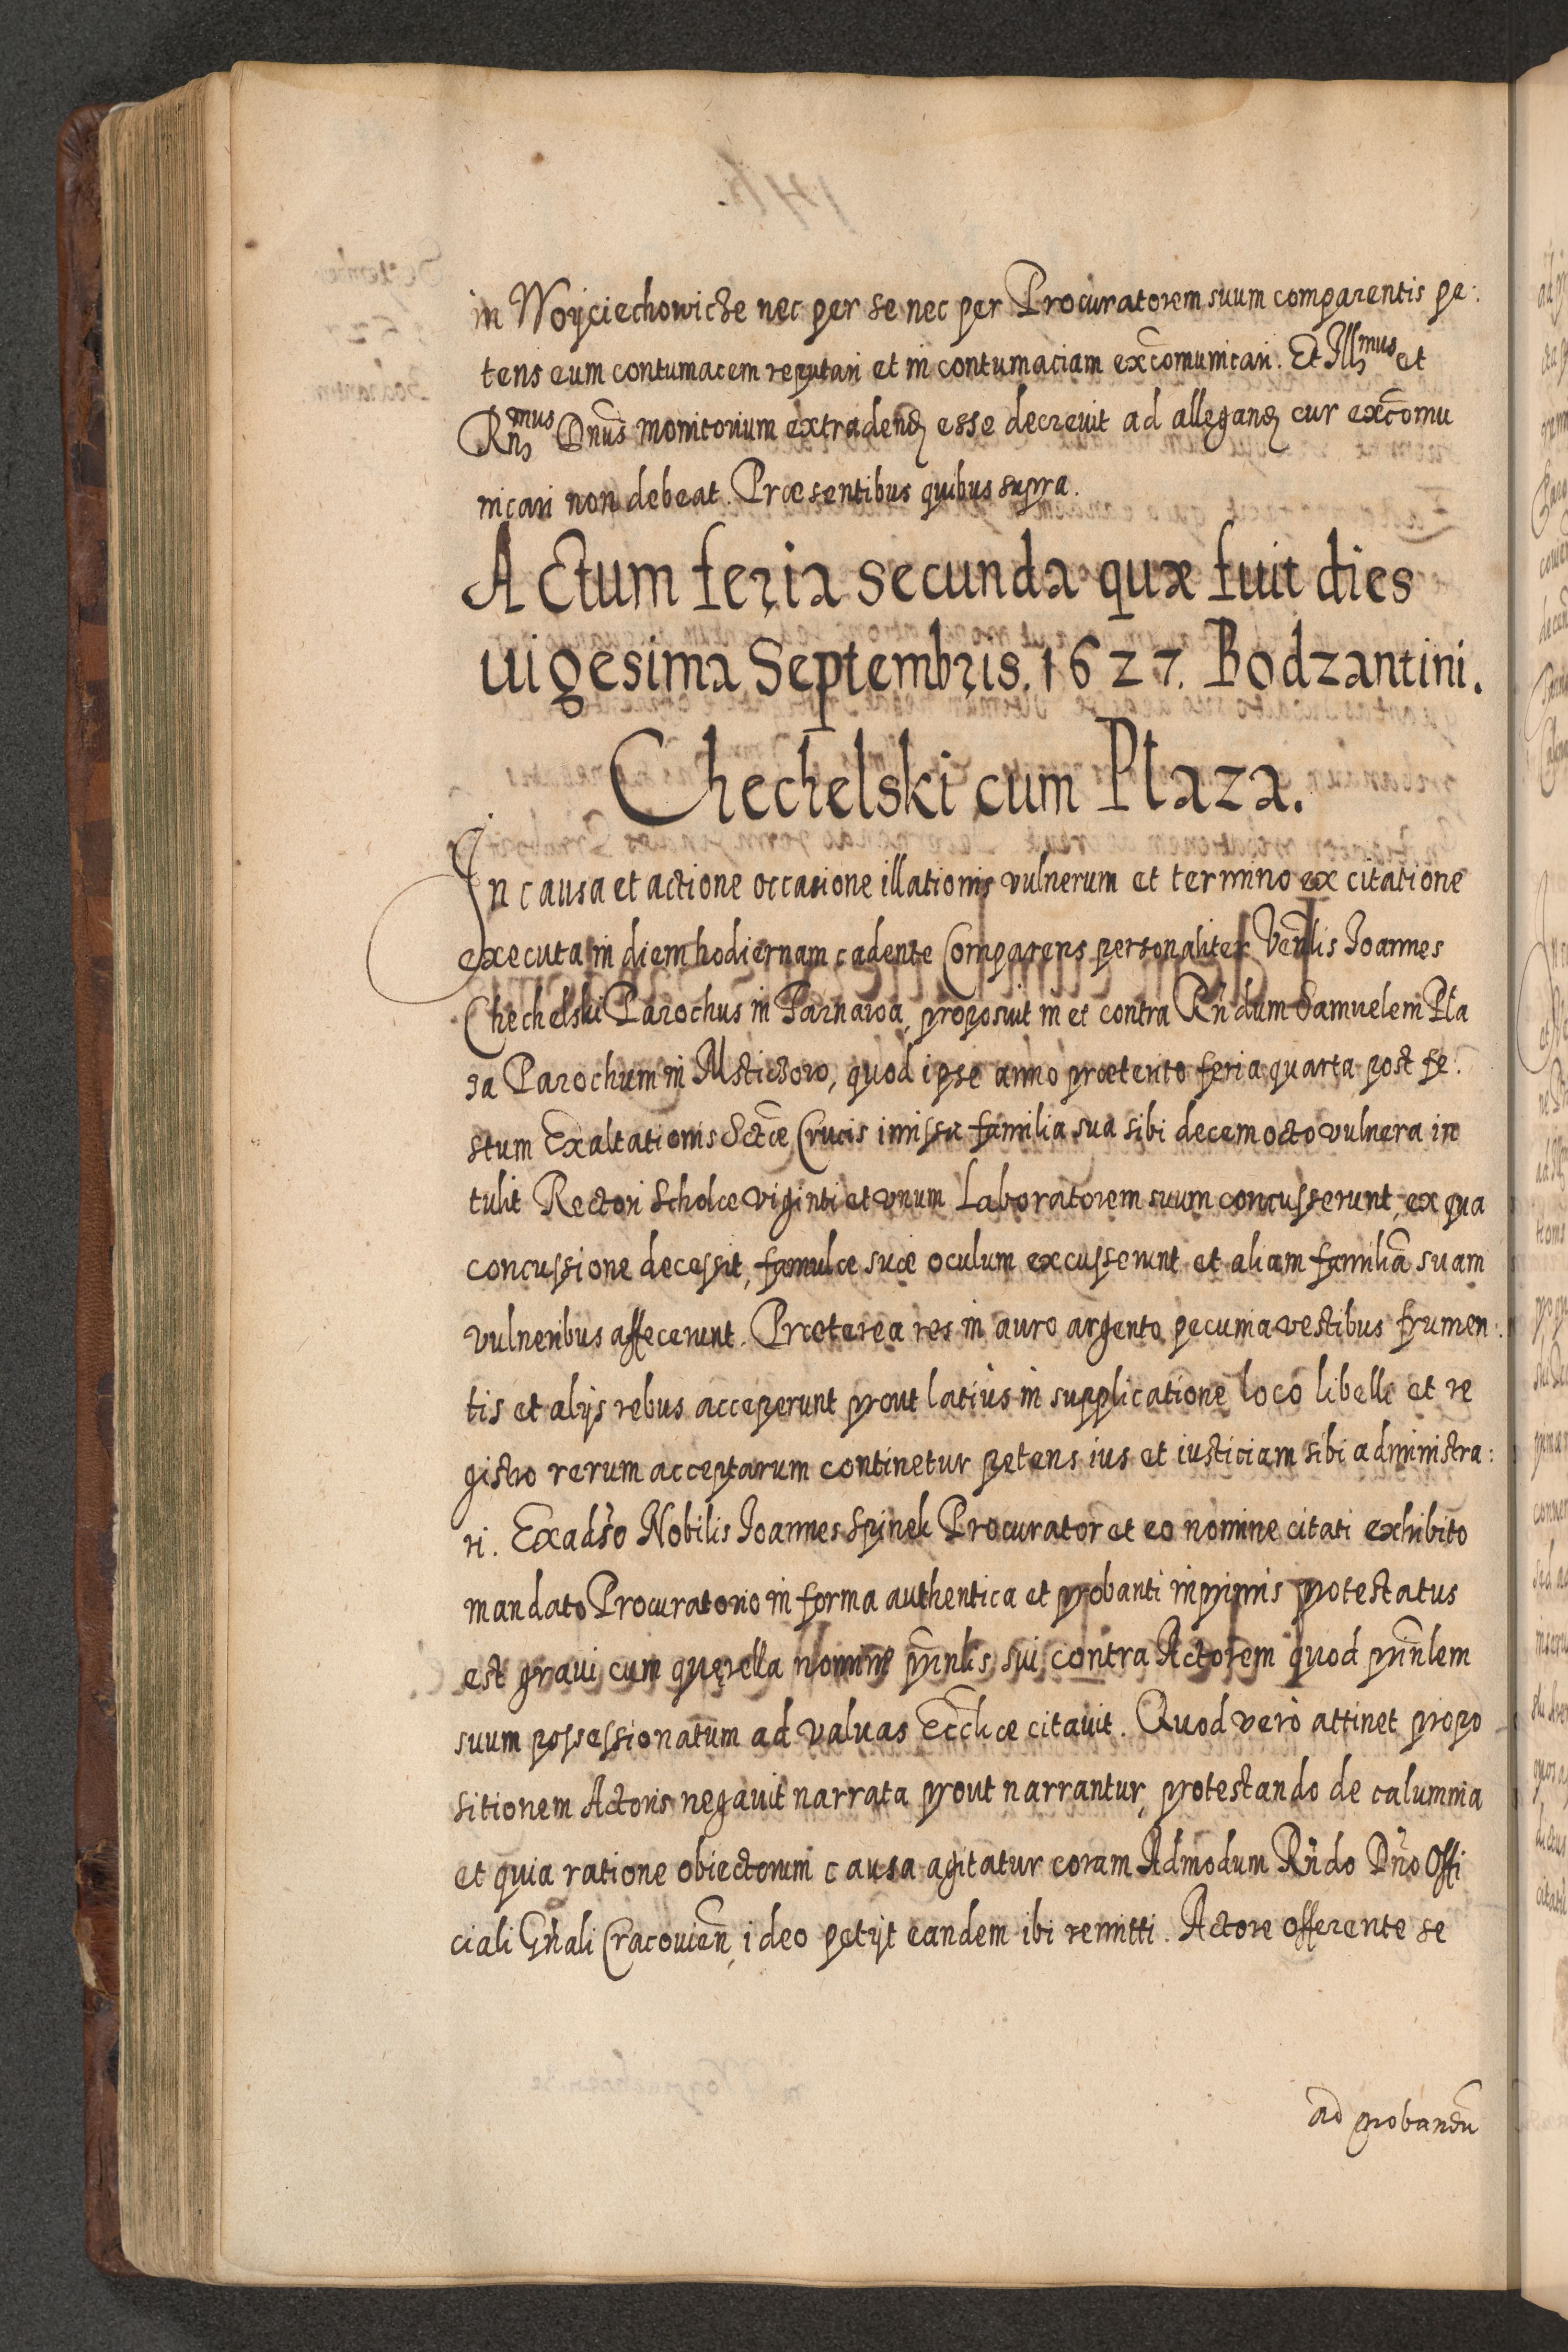 in Woyciechowicze nec per se nec per Procuratorem suum comparentis pe:
tens eum contumacem reputari et in contumaciam excõmunicari. Et Illmus et
Rnmus Dnũs monitorium extradend esse decrevit ad allegand cur excõmu
nicari non debeat. Præsentibus quibus supra.
Actum feria secunda quæ fuit dies
uigesima Septembris. 1627. Bodzantini.
Chechelski cum Plaza.
In causa et actione occasione illationis vulnerum et termino ex citatione
executa in diem hodiernam cadente Comparens personaliter Venlis Joannes
Chechelski Parochus in Tarnawa, proposuit in et contra Rñdum Samuelem Pla
za Parochum in Msticzow, quod ipse anno præterito feria quarta post fe:
stum Exaltationis Sctæ Crucis imissa familia sua sibi decem octo vulnera in
tulit Rectori Scholæ viginti et vnum Laboratorem suum concusserunt, ex qua
concussione decessit, famulæ suæ oculum excusserunt et aliam familiã suam
vulneribus affecerunt. Præterea res in auro argento pecunia vestibus frumen:
tis et alijs rebus acceperunt prout latiùs in supplicatione loco libelli et re
gistro rerum acceptarum continetur petens ius et iusticiam sibi administra:
ri. Ex adso Nobilis Joannes Spinek Procurator et eo nomine citati exhibito
mandato Procuratorio in forma authentica et probanti inprimis protestatus
est graui cum querella nomine prinlis sui contra Actorem quod prinlem
suum possessionatum ad valuas Ecclæ citauit. Quod verò attinet propo
sitionem Actoris negauit narrata prout narrantur, protestando de calumnia
et quia ratione obiectorum causa agitatur coram Admodum Rñdo Dño Offi
ciali Gñali Cracouien, ideo petijt eandem ibi remitti. Actore offerente se
ad probandũ